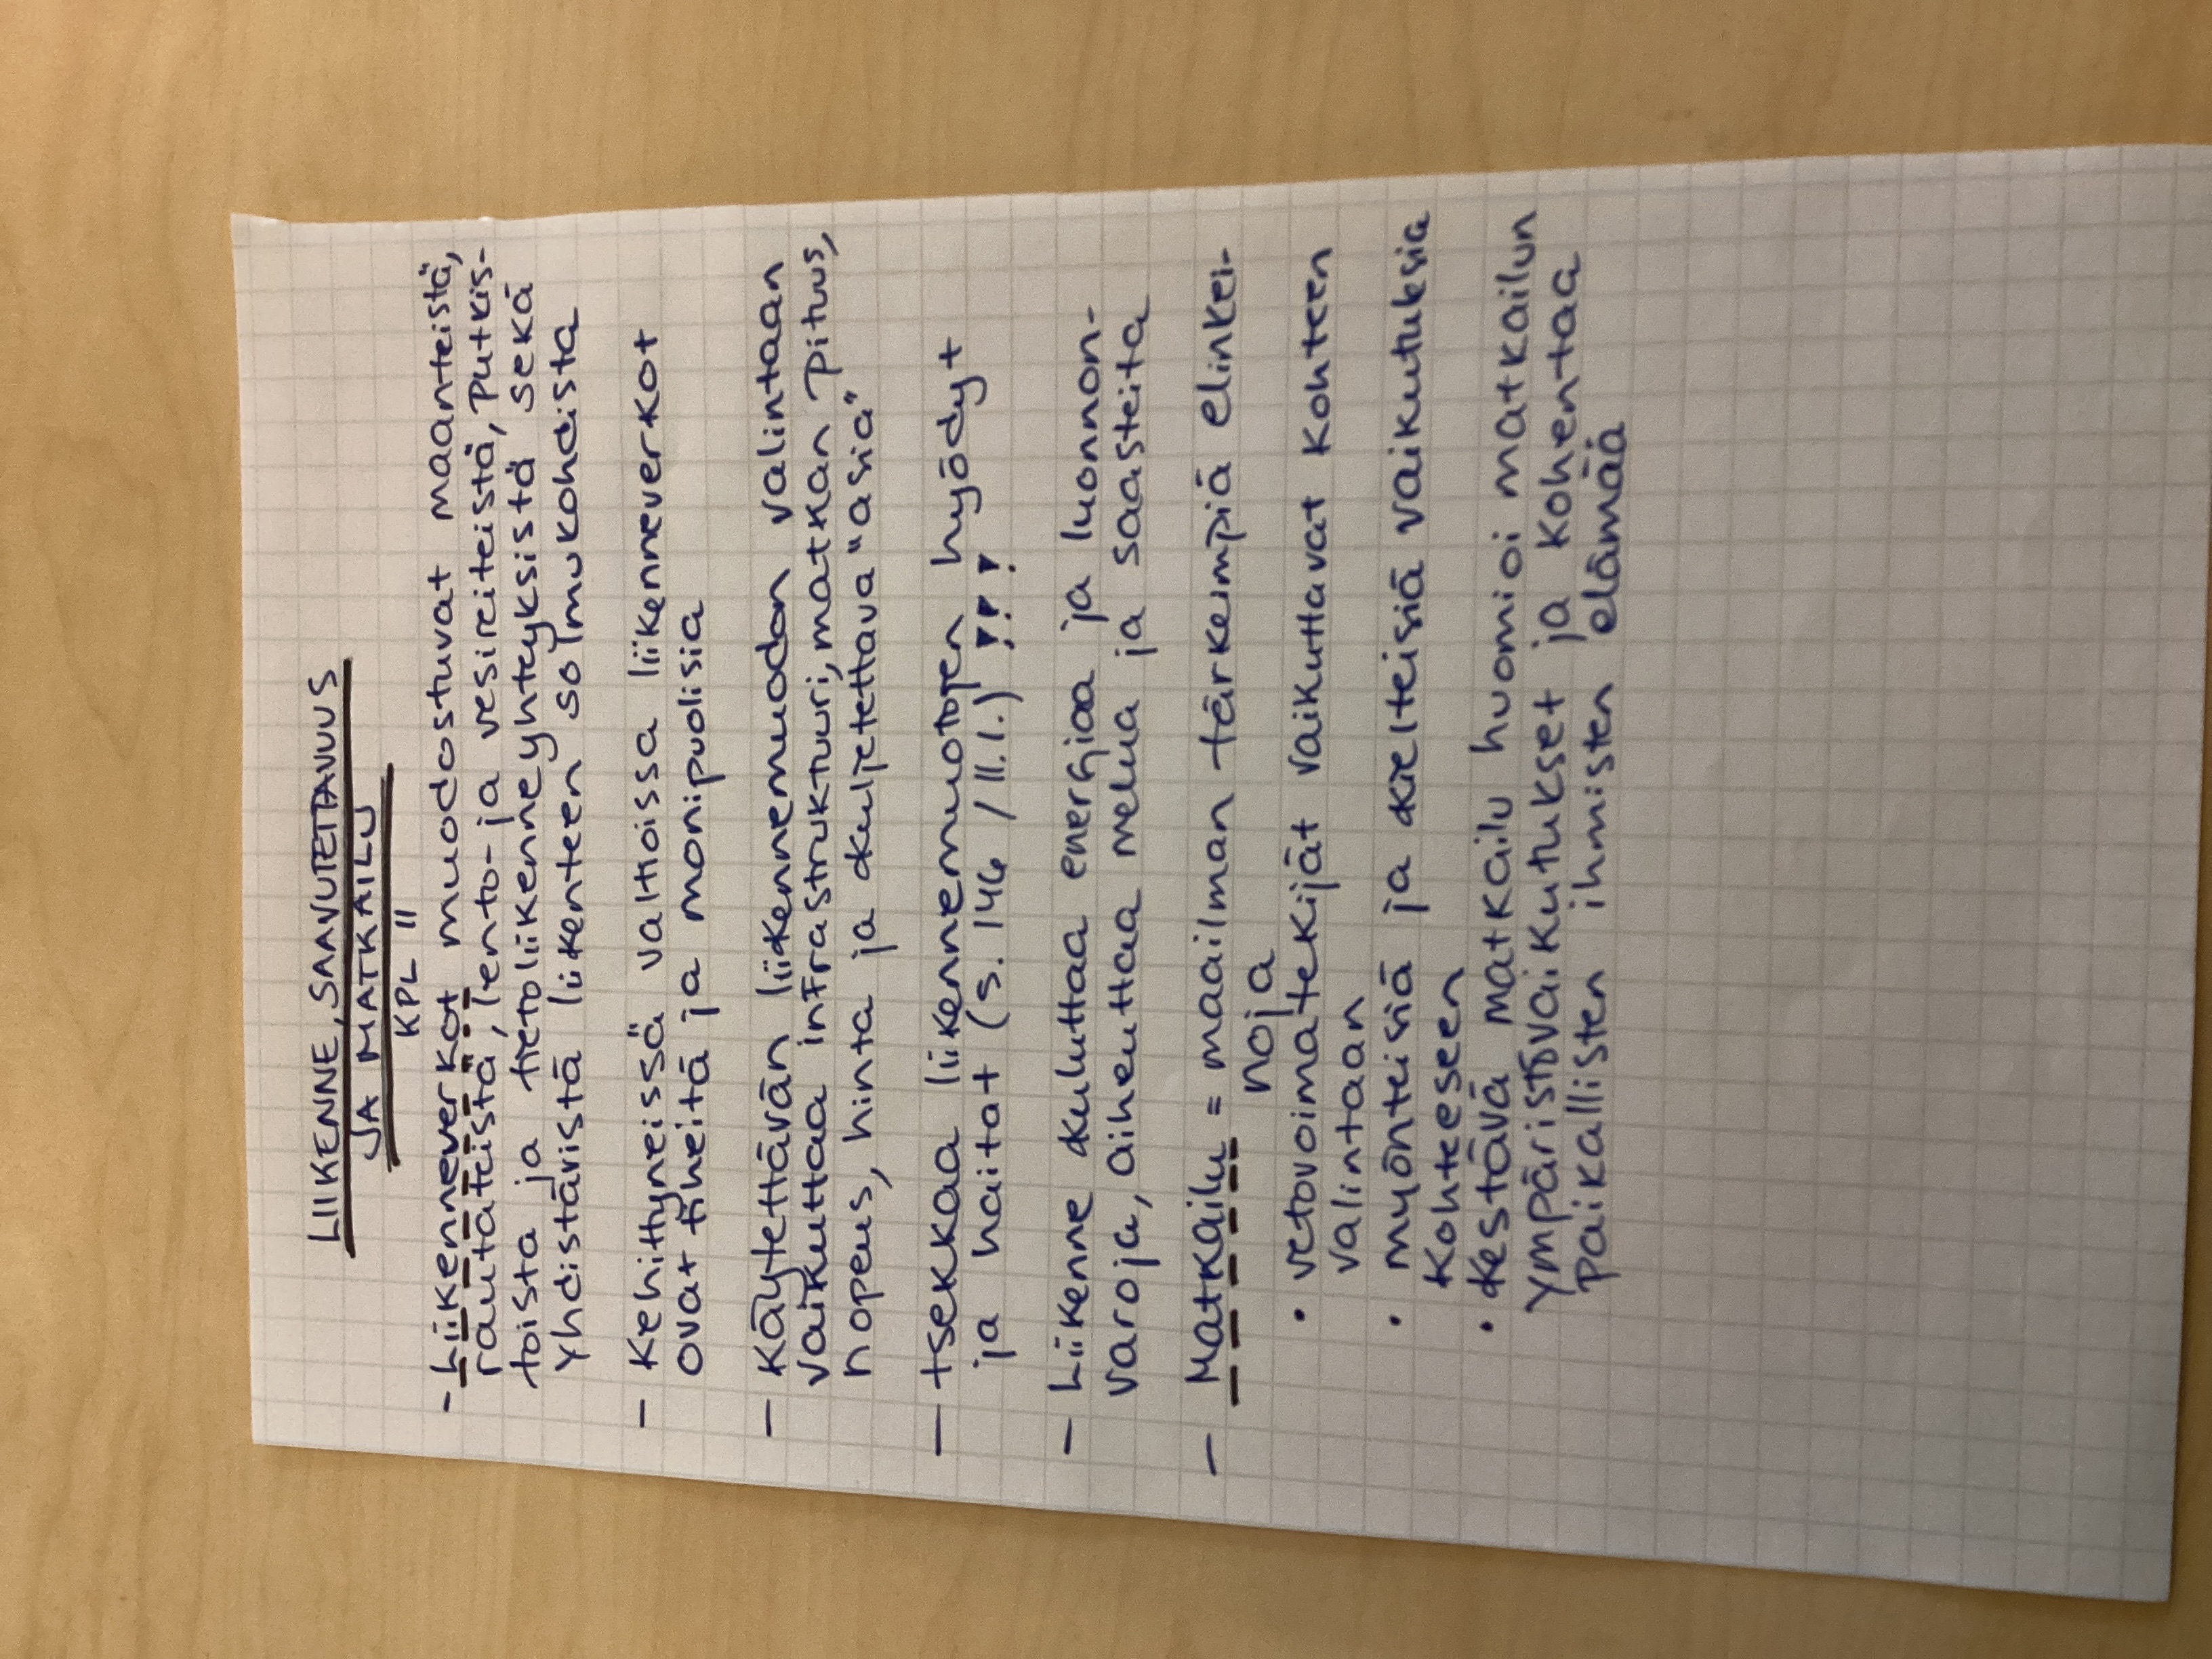 LIIKENNE, SAAVUTETTAVUUS
JA MATKAILU
KPL 11
- Liikenneverkot muodostuvat maanteistä,
rautateistä, lento- ja vesireiteistä, putkis-
toista ja tietoliikenneyhteyksistä sekä
yhdistäristä liikenteen solmukohdista
- Kehittyneissä valtioissa liikenneverkot
ovat tiheitä ja monipuolisia
- Käytettävän liikennemuodon valintaan
vaikuttaa infrastruktuuri, matkan pituus,
nopeus, hinta ja kuljetettava "asia"
- tsekkaa liikennemuotojen hyödyt
ja haitat (s. 146 / 11.1.) !!!
- Liikenne kuluttaa energiaa ja luonnon-
varoja, aiheuttaa melua ja saasteita
- Matkailu = maailman tärkeimpiä elinkei-
noja
• vetovoimatekijät vaikuttavat kohteen
valintaan
• myönteisiä ja kielteisiä vaikutuksia
kohteeseen
• kestävä matkailu huomioi matkailun
ympäristövaikutukset ja kohentaa
paikallisten ihmisten elämää